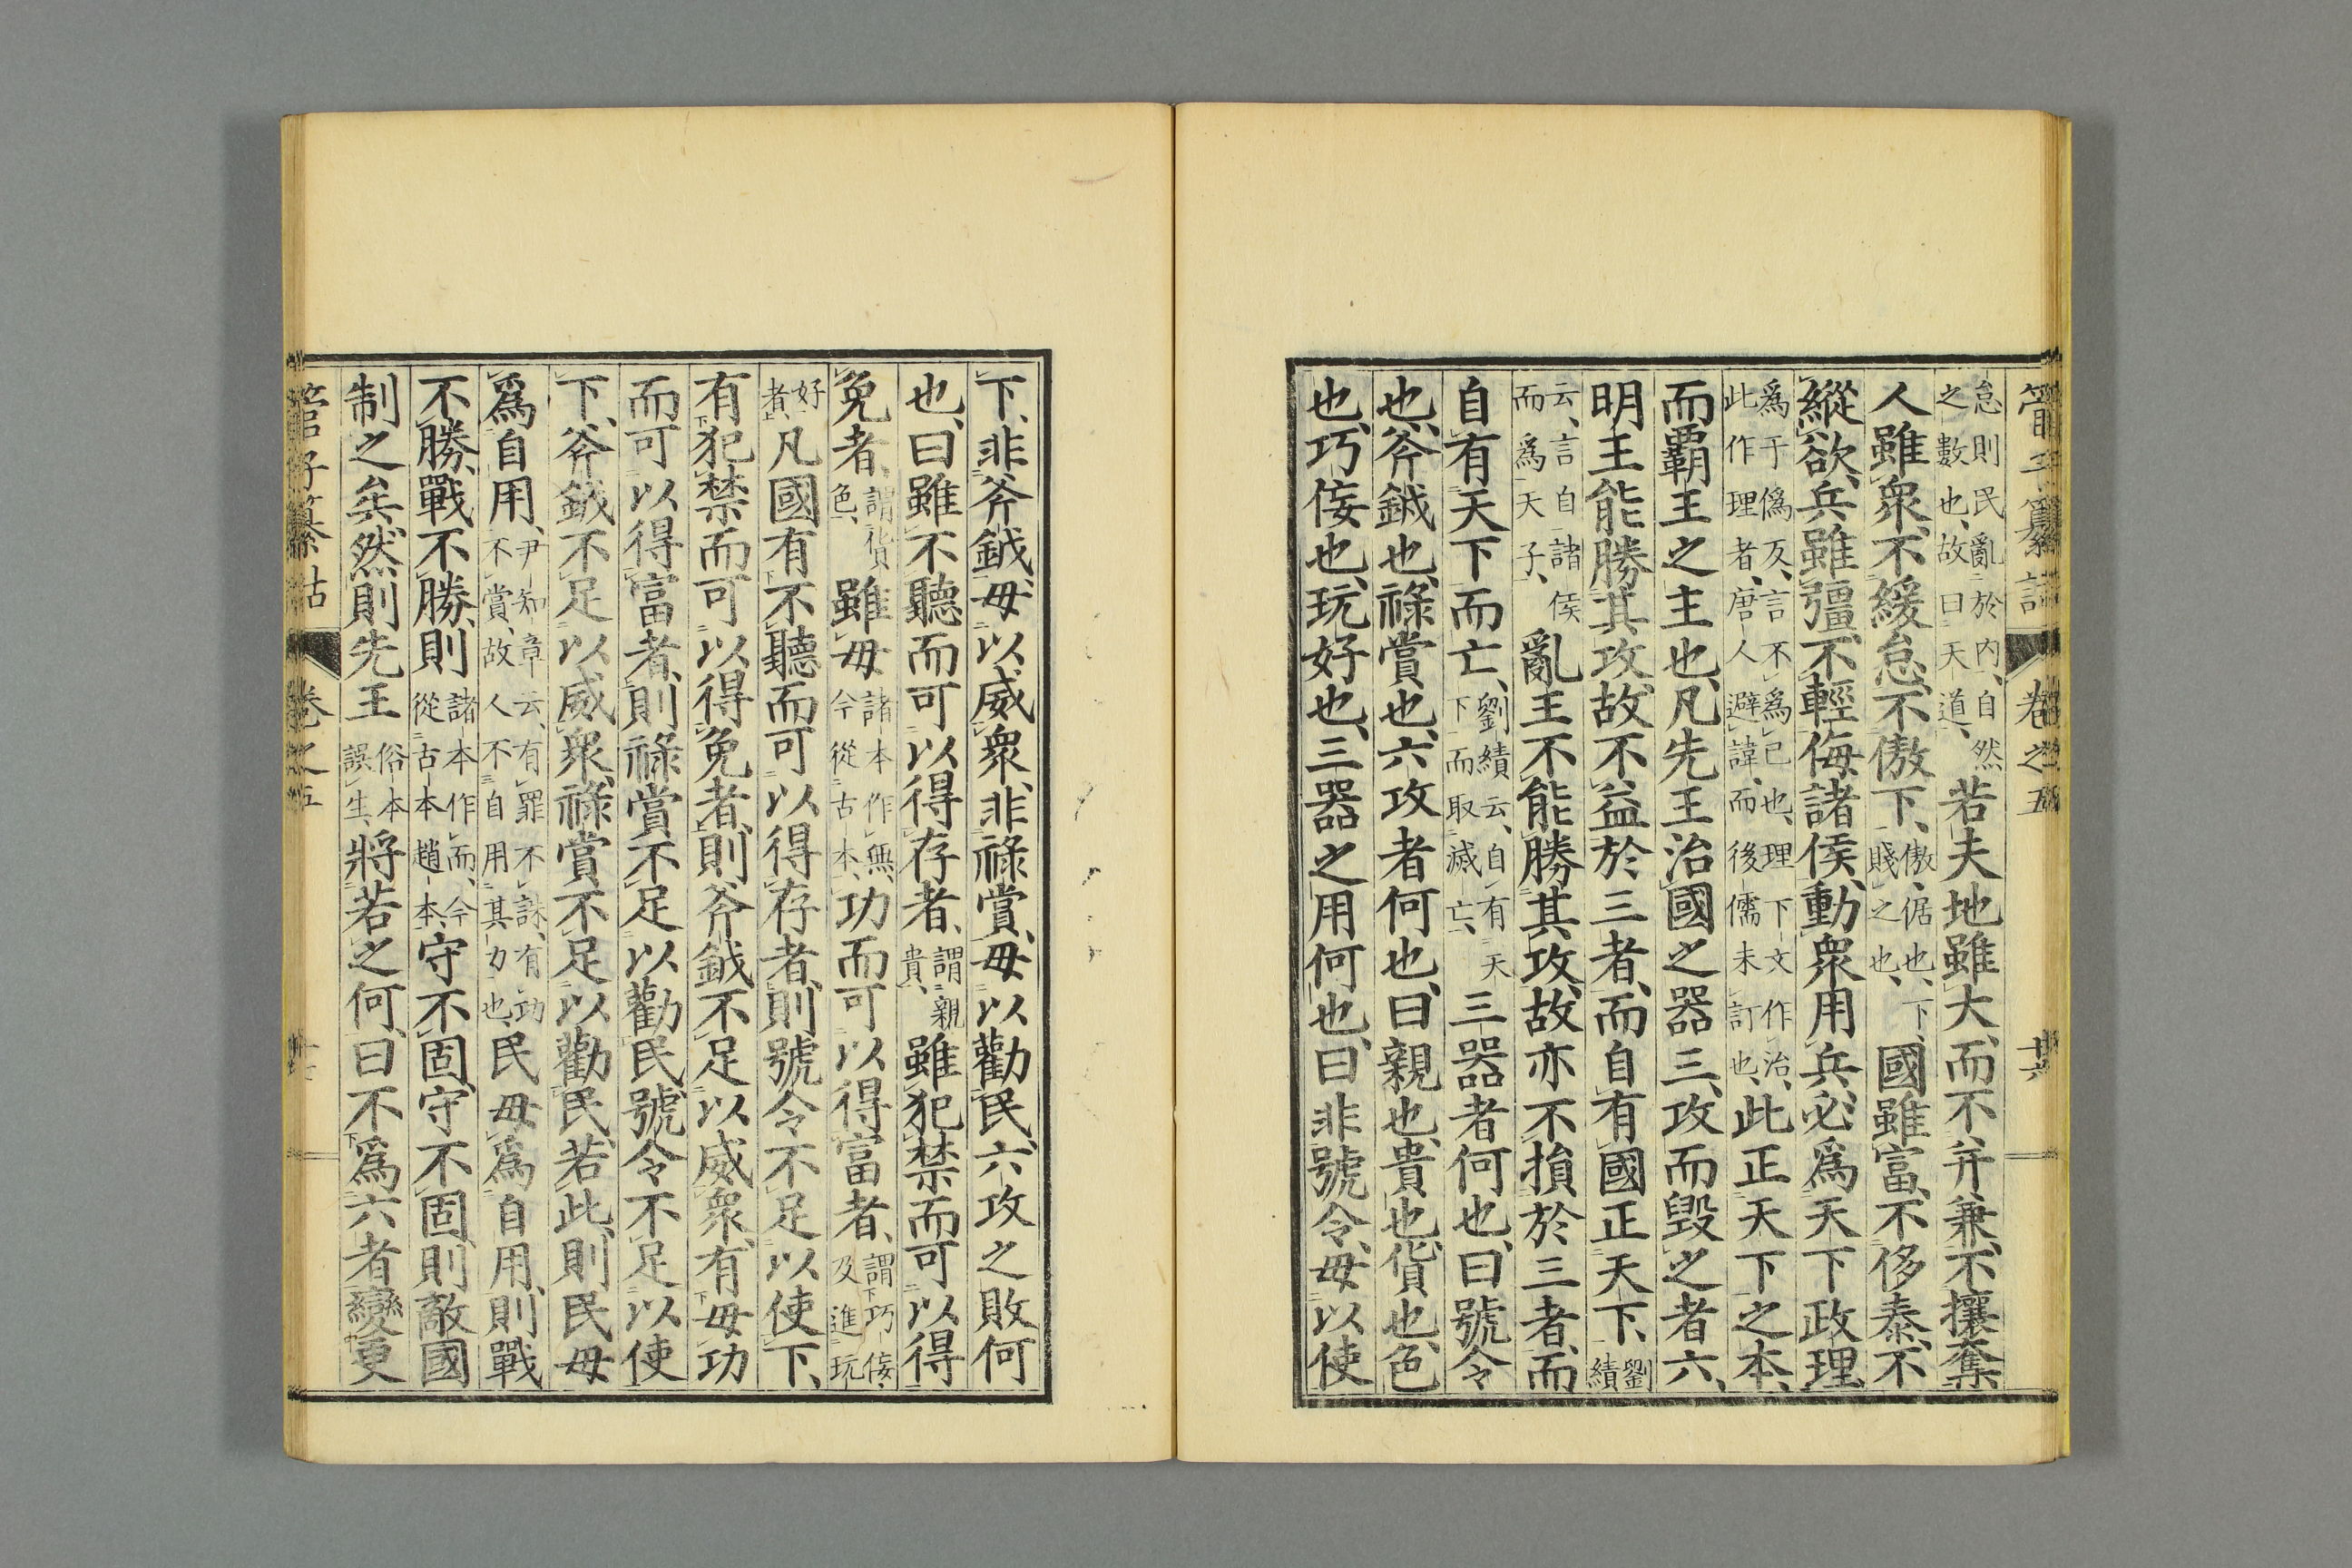 管子纂詁 卷之五 廿六
怠則民亂於內、自然之數也、故曰天道、若夫地雖大、而不幷兼、不攘奪、
人雖衆、不緩怠、不傲下、傲、倨也、下、賤之也、國雖富、不侈泰、不
縱欲、兵雖彊、不輕侮諸侯、動衆用兵、必爲天下政理、
爲于僞反、言不爲己也、理下文作治、此作理者、唐人避諱、而後儒未訂也、此正天下之本、
而霸王之主也、凡先王治國之器三、攻而毀之者六、
明王能勝其攻、故不益於三者、而自有國正天下、劉績
云、言自諸侯而爲天子、亂王不能勝其攻、故亦不損於三者、而
自有天下而亡、劉績云、自有天下而取滅亡、三器者何也、曰號令
也、斧鉞也、祿賞也、六攻者何也、曰親也、貴也、貨也、色
也、巧佞也、玩好也、三器之用何也、曰非號令、毋以使
下、非斧鉞、毋以威衆、非祿賞、毋以勸民、六攻之敗何
也、曰雖不聽而可以得存者、謂親貴、雖犯禁而可以得
免者、謂貨色、雖毋諸本作無、今從古本、功而可以得富者、謂巧佞、及進玩
好者、凡國有不聽而可以得存者、則號令不足以使下、
有犯禁而可以得免者、則斧鉞不足以威衆、有毋功
而可以得富者、則祿賞不足以勸民、號令不足以使
下、斧鉞不足以威衆、祿賞不足以勸民、若此、則民毋
爲自用、尹知章云、有罪不誅、有功不賞、故人不自用其力也、民毋爲自用、則戰
不勝、戰不勝、則諸本作而、今從古本趙本、守不固、守不固、則敵國
制之矣、然則先王俗本誤生、將若之何、曰不爲六者變更
管子纂詁 卷之五